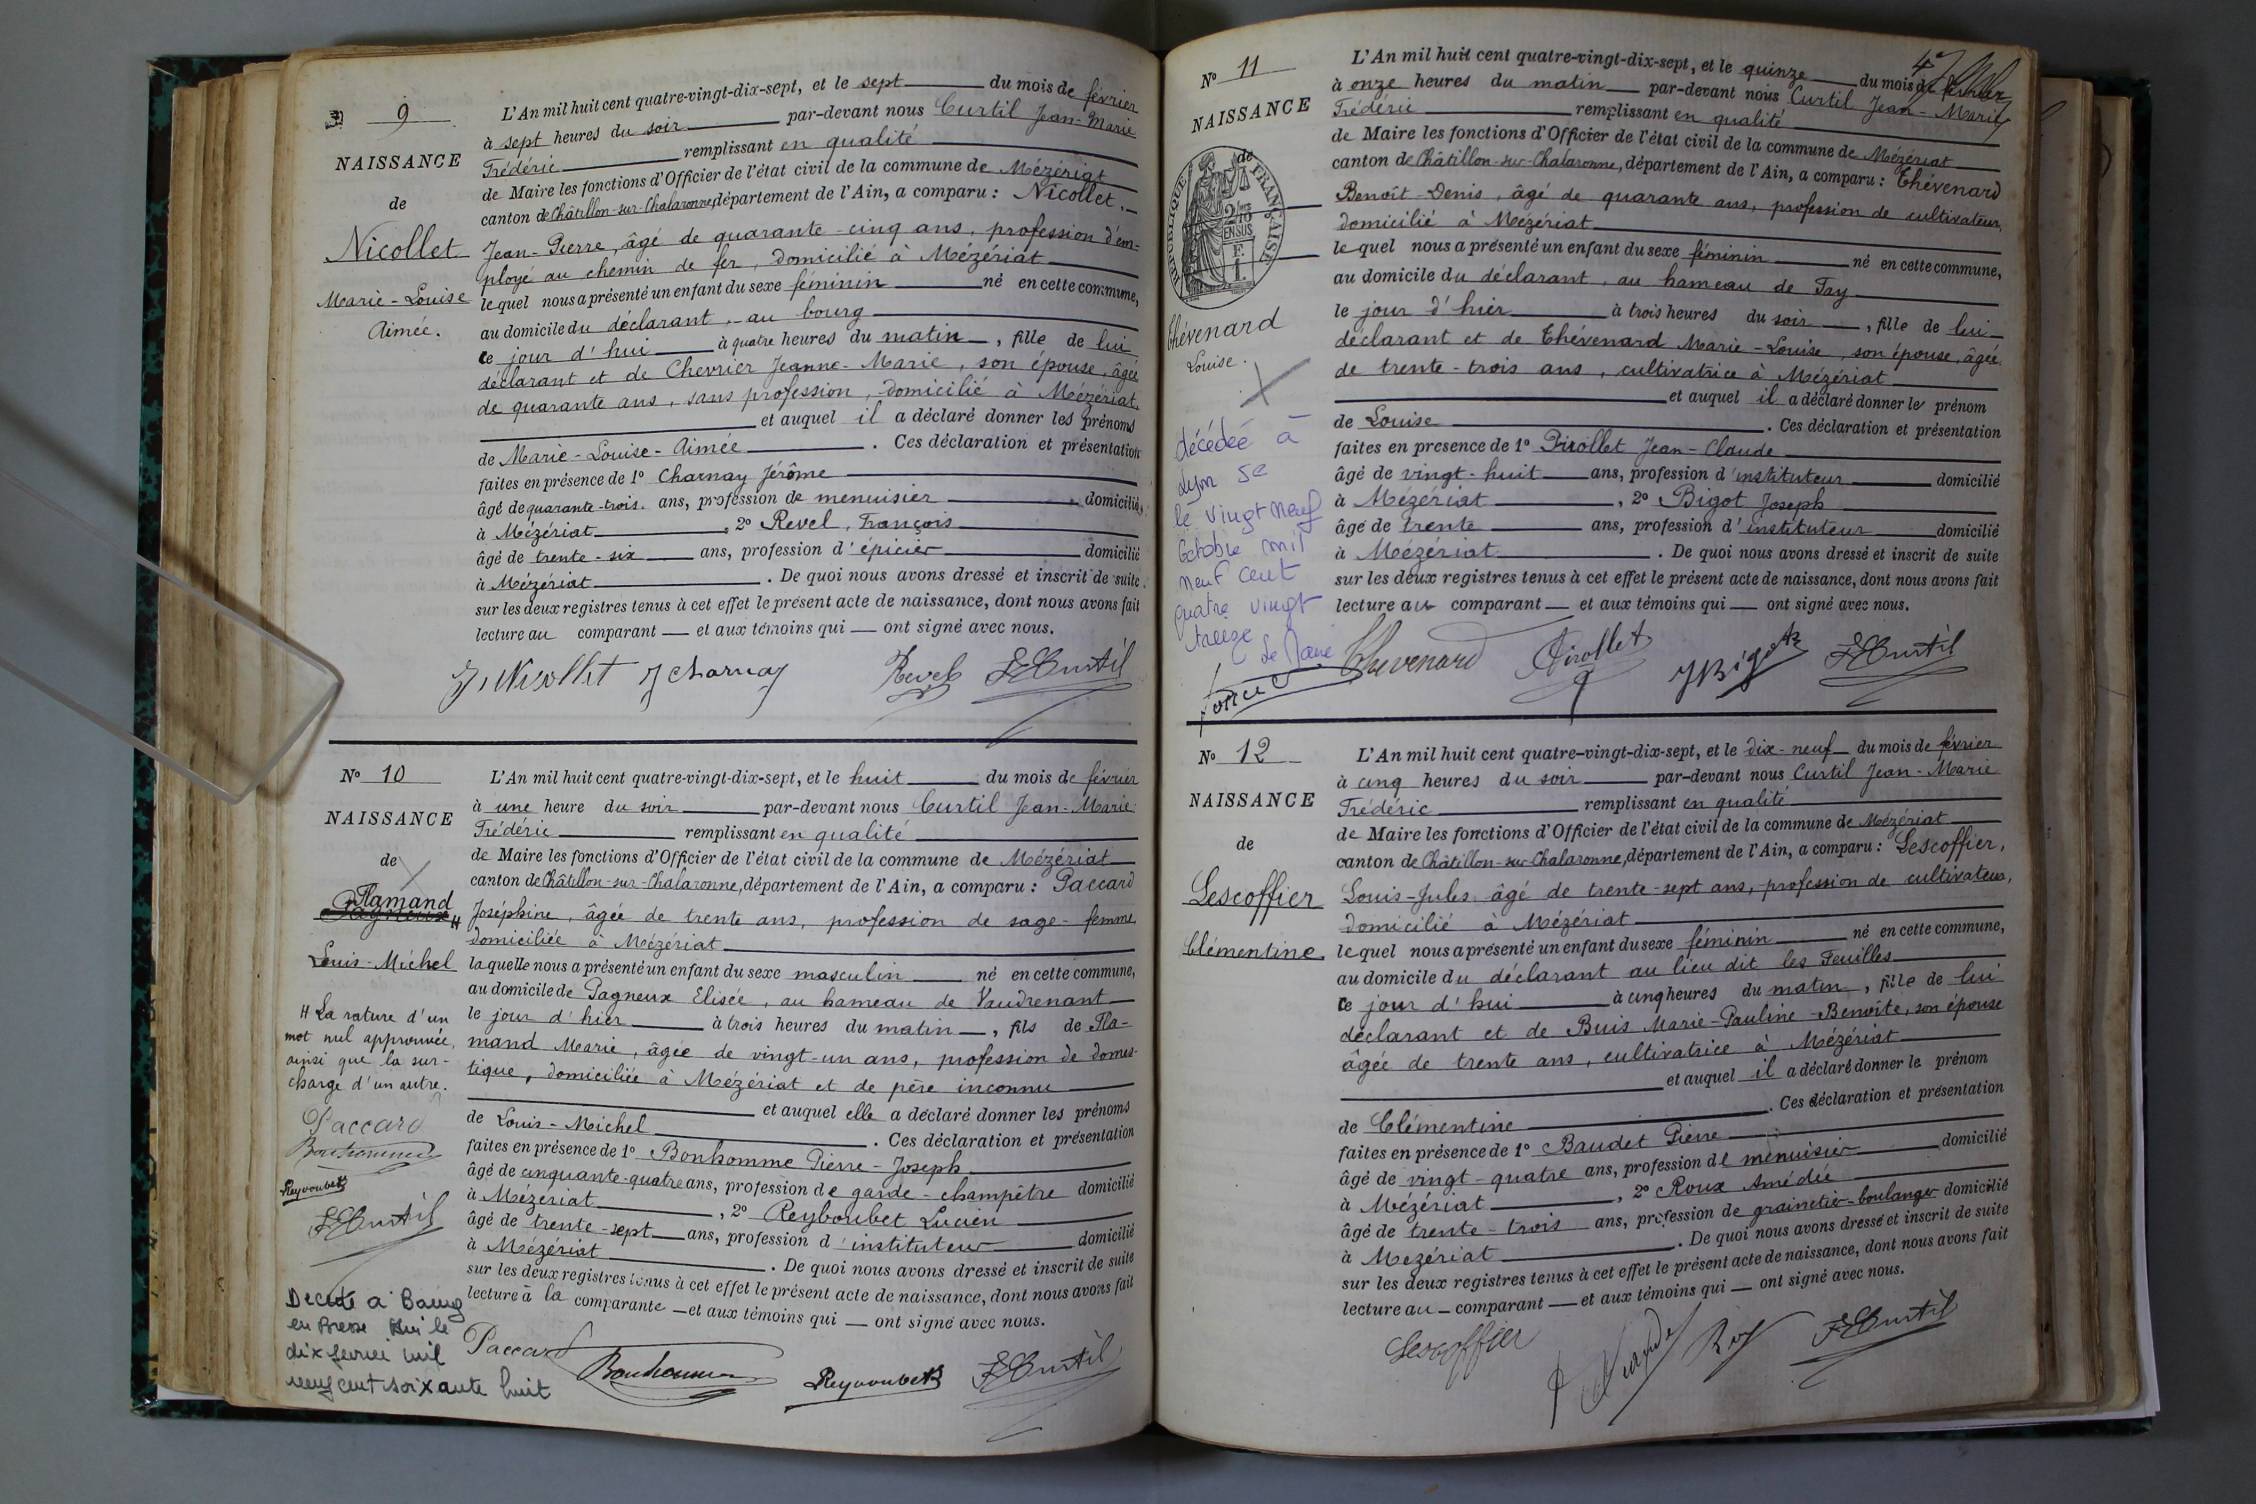 9
NAISSANCE
de
Nicollet
Marie-Louise
Aimée.
L'An mil huit cent quatre-vingt-dix-sept, et le sept du mois de février
à sept heures du soir par-devant nous Curtil Jean-Marie
Frédéric remplissant en qualité
de Maire les fonctions d'Officier de l'état civil de la commune de Mézériat
canton de Châtillon-sur-Chalaronne, département de l'Ain, a comparu : Nicollet
Jean-Pierre, âgé de quarante-cinq ans, profession d'em-
ployé au chemin de fer, domicilié à Mézériat
lequel nous a présenté un enfant du sexe féminin né en cette commune,
au domicile du déclarant, au bourg
ce jour d'hui à quatre heures du matin, fille de lui
déclarant et de Chevrier Jeanne-Marie, son épouse, âgée
de quarante ans, sans profession, domicilié à Mézériat,
et auquel il a déclaré donner les prénoms
de Marie-Louise-Aimée. Ces déclaration et présentation
faites en présence de 1° Charnay Jérôme
âgé de quarante-trois. ans, profession de menuisier domicilié,
à Mézériat, 2° Revel, François
âgé de trente-six ans, profession d'épicier domicilié
à Mézériat. De quoi nous avons dressé et inscrit de suite
sur les deux registres tenus à cet effet le présent acte de naissance, dont nous avons fait
lecture au comparant et aux témoins qui ont signé avec nous.
Nicollet J Charnay Revel Curtil
N° 10
NAISSANCE
de
Flamand
Louis-Michel
H La rature d'un
mot nul approuvée,
ainsi que la sur-
charge d'un autre.
Paccard
Bonhomme
Reyboubet
Curtil
Décédé à Baneg
en Bresse Ain le
dix fevrier mil
neuf cent soixante huit
L'An mil huit cent quatre-vingt-dix-sept, et le huit du mois de février
à une heure du soir par-devant nous Curtil Jean-Marie
Frédéric remplissant en qualité
de Maire les fonctions d'Officier de l'état civil de la commune de Mézériat
canton de Châtillon-sur-Chalaronne, département de l'Ain, a comparu : Paccard
Joséphine, âgée de trente ans, profession de sage-femme
domiciliée à Mézériat
laquelle nous a présenté un enfant du sexe masculin né en cette commune,
au domicile de Pagneux Elisée, au hameau de Vaudrenant
le jour d'hier à trois heures du matin, fils de Fla-
mand Marie, âgée de vingt-un ans, profession de domes-
tique, domiciliée à Mézériat et de père inconnu
et auquel elle a déclaré donner les prénoms
de Louis-Michel. Ces déclaration et présentation
faites en présence de 1° Bonhomme Pierre-Joseph
âgé de cinquante-quatre ans, profession de garde-champêtre domicilié
à Mézériat, 2° Reyboubet Lucien
âgé de trente-sept ans, profession d'instituteur domicilié
à Mézériat. De quoi nous avons dressé et inscrit de suite
sur les deux registres tenus à cet effet le présent acte de naissance, dont nous avons fait
lecture à la comparante et aux témoins qui ont signé avec nous.
Paccard Bonhomme Reyboubet Curtil
N° 11
NAISSANCE
de
RÉPUBLIQUE FRANÇAISE
2/10 EN SUS
Thévenard
Louise.
décédée à
Lyon 5e
le vingt neuf
Octobre mil
neuf cent
quatre vingt
treize
L'An mil huit cent quatre-vingt-dix-sept, et le quinze du mois de février
à onze heures du matin par-devant nous Curtil Jean-Marie
Frédéric remplissant en qualité
de Maire les fonctions d'Officier de l'état civil de la commune de Mézériat
canton de Châtillon-sur-Chalaronne, département de l'Ain, a comparu : Thévenard
Benoît-Denis, âgé de quarante ans, profession de cultivateur,
domicilié à Mézériat
lequel nous a présenté un enfant du sexe féminin né en cette commune,
au domicile du déclarant, au hameau de Fay
le jour d'hier à trois heures du soir, fille de lui
déclarant et de Thévenard Marie-Louise, son épouse, âgée
de trente-trois ans, cultivatrice à Mézériat
et auquel il a déclaré donner le prénom
de Louise. Ces déclaration et présentation
faites en présence de 1° Pirollet Jean-Claude
âgé de vingt-huit ans, profession d'instituteur domicilié
à Mézériat, 2° Bigot Joseph
âgé de trente ans, profession d'instituteur domicilié
à Mézériat. De quoi nous avons dressé et inscrit de suite
sur les deux registres tenus à cet effet le présent acte de naissance, dont nous avons fait
lecture au comparant et aux témoins qui ont signé avec nous.
Thevenard Pirollet J Bigot Curtil
N° 12
NAISSANCE
de
Lescoffier
Clémentine
L'An mil huit cent quatre-vingt-dix-sept, et le dix-neuf du mois de février
à cinq heures du soir par-devant nous Curtil Jean-Marie
Frédéric remplissant en qualité
de Maire les fonctions d'Officier de l'état civil de la commune de Mézériat
canton de Châtillon-sur-Chalaronne, département de l'Ain, a comparu : Lescoffier,
Louis-Jules âgé de trente-sept ans, profession de cultivateur,
domicilié à Mézériat
lequel nous a présenté un enfant du sexe féminin né en cette commune,
au domicile du déclarant au lieu dit les Feuilles
ce jour d'hui à cinq heures du matin, fille de lui
déclarant et de Buis Marie-Pauline-Benoîte, son épouse
âgée de trente ans, cultivatrice à Mézériat
et auquel il a déclaré donner le prénom
de Clémentine. Ces déclaration et présentation
faites en présence de 1° Baudet Pierre
âgé de vingt-quatre ans, profession de menuisier domicilié
à Mézériat, 2° Roux Amédée
âgé de trente-trois ans, profession de grainetier-boulanger domicilié
à Mézériat. De quoi nous avons dressé et inscrit de suite
sur les deux registres tenus à cet effet le présent acte de naissance, dont nous avons fait
lecture au comparant et aux témoins qui ont signé avec nous.
Lescoffier Curtil